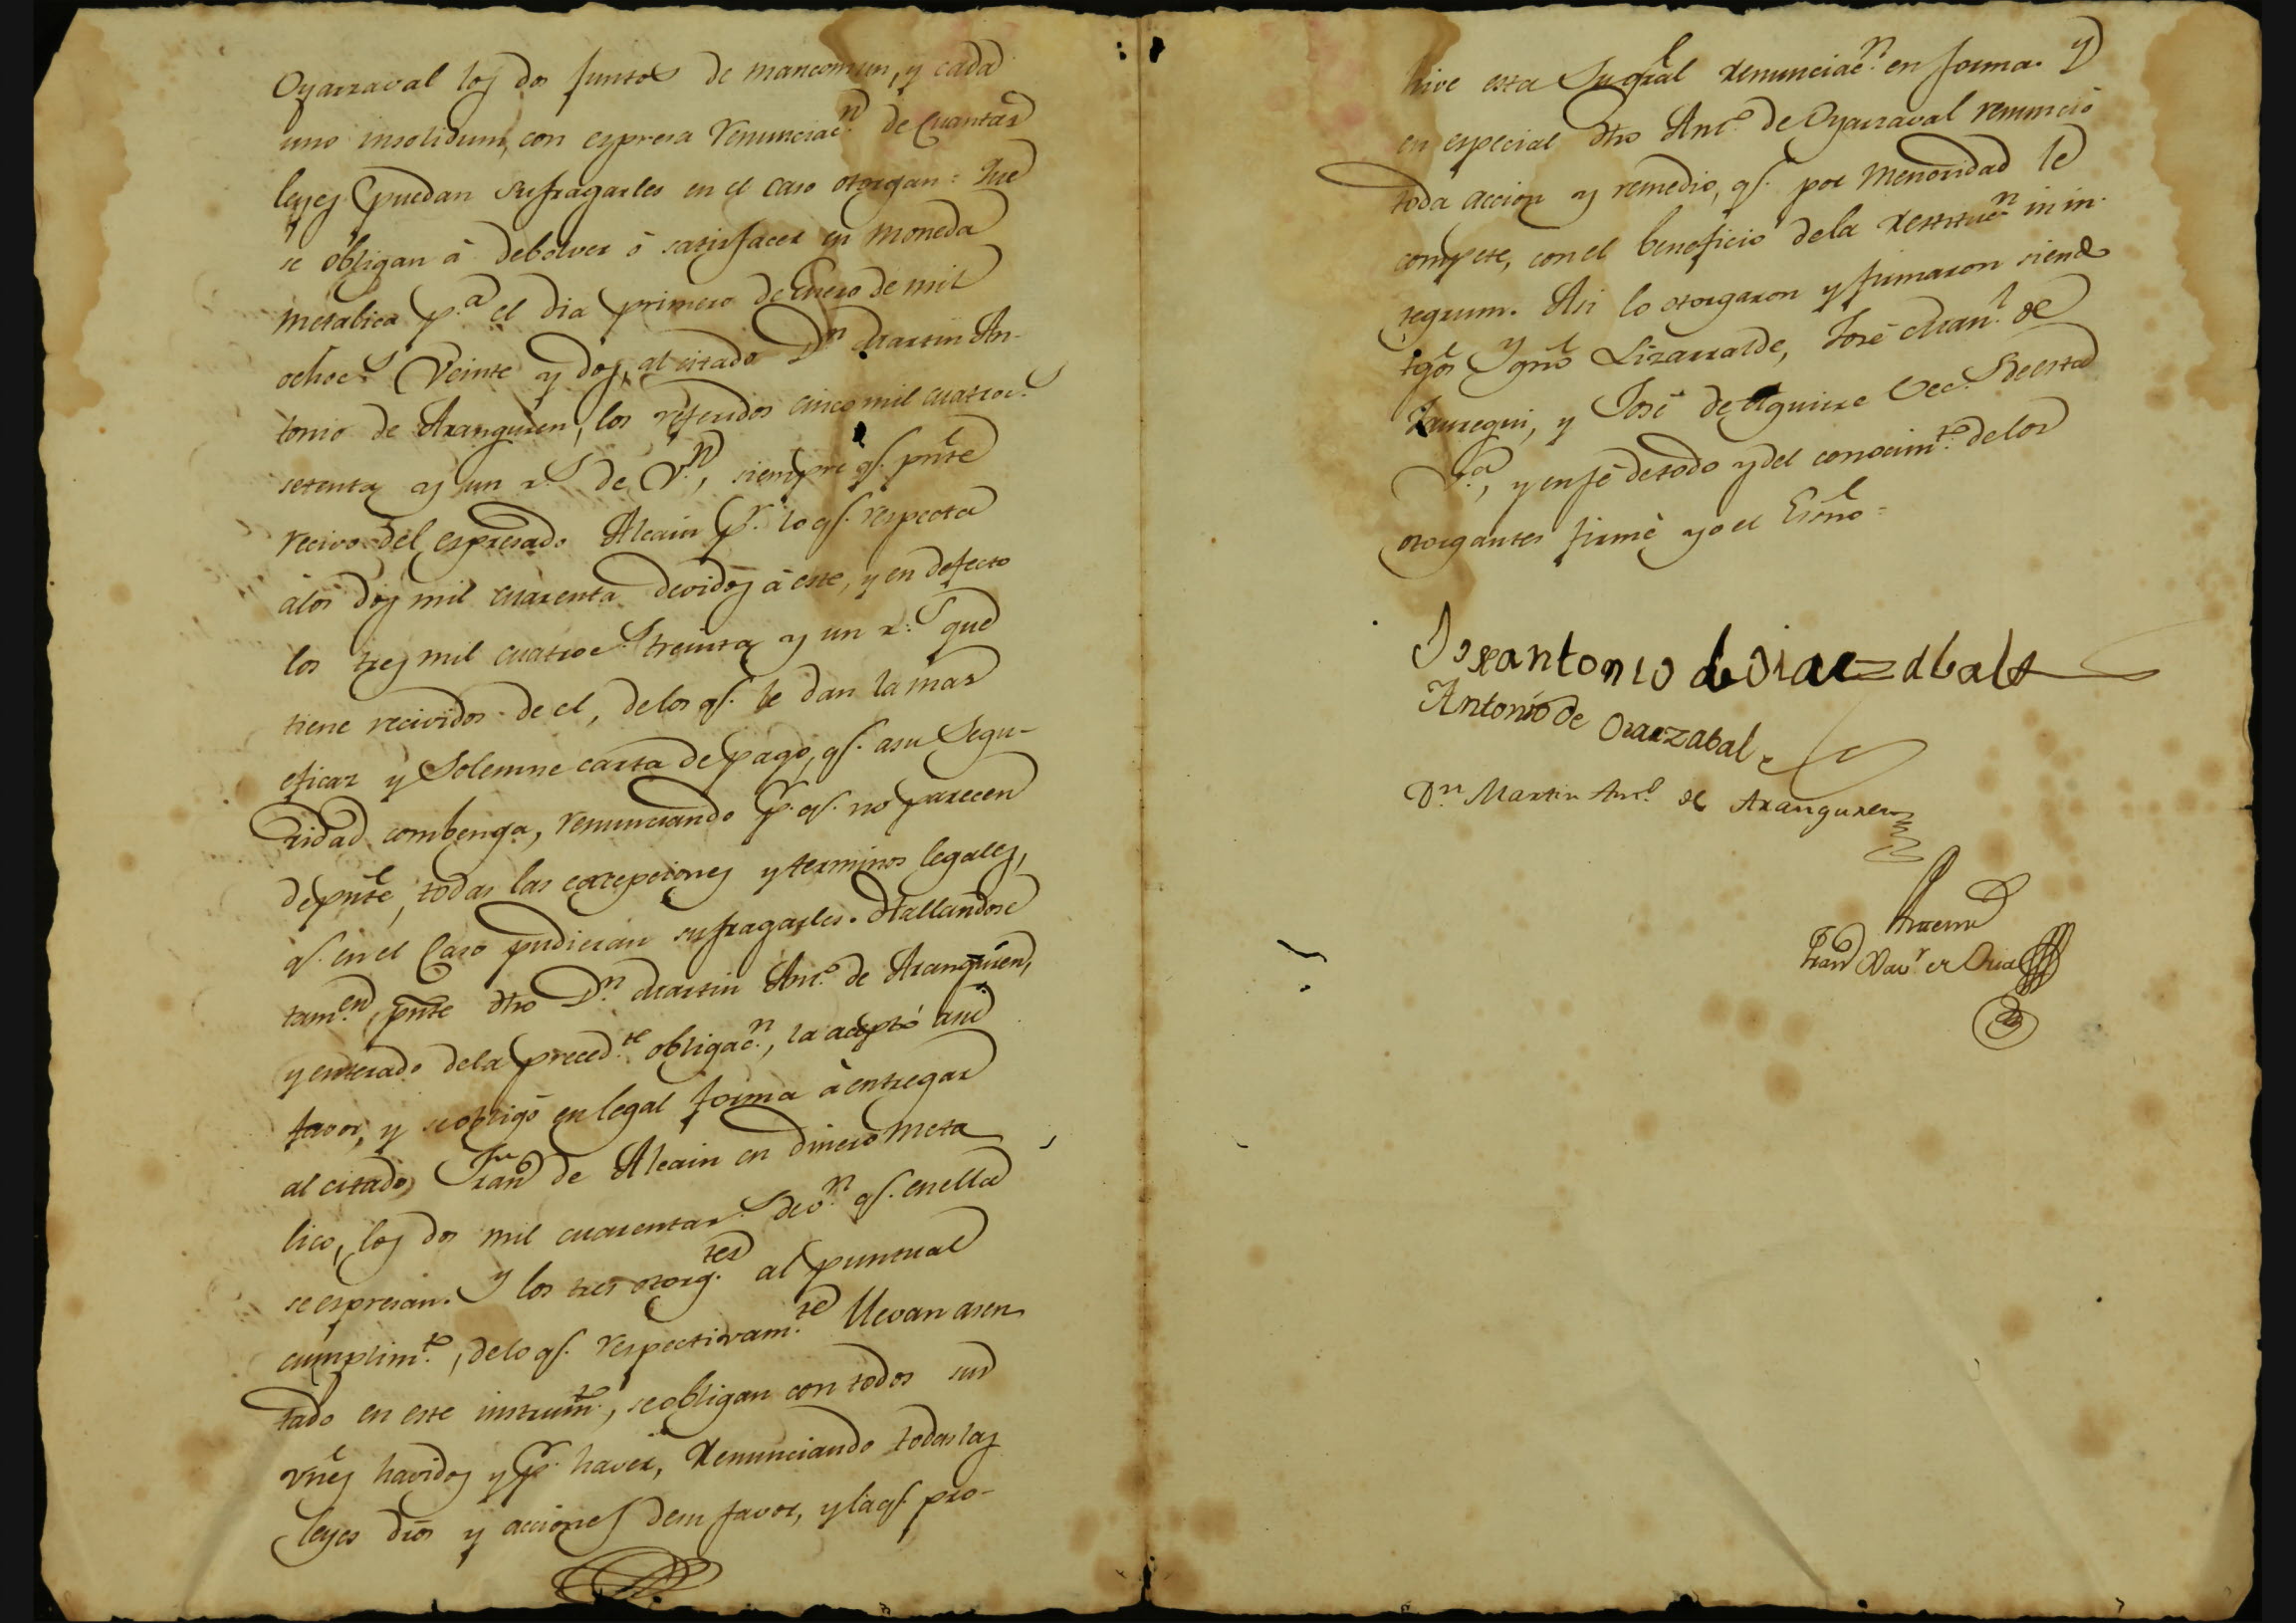 Oyarzaval los dos juntos de mancomun, y cada
uno insolidum, con espresa renunciac.n de cuantas
leyes puedan sufragarles en el caso otorgan: Que
se obligan à debolver ó satisfacer en moneda
metalica p.a el dia primero de Enero de mil
ochoc.s Veinte y dos, al citado D.n Martin An-
tonio de Aranguren, los referidos cinco mil cuatroc.s
setenta y un r.s de V.n, siempre q.e pnte
recivo del espresado Alcain p.r lo q.e respecta
àlos dos mil cuarenta devidos à este, y en defecto
los tres mil cuatroc.s treinta y un r.s que
tiene recividos de el, delos q.e le dan la mas
eficaz y Solemne carta de pago, q.e asu Segu-
ridad combenga, renunciando p.r q.e no parecen
depnte, todas las excepciones y terminos legales,
q.e en el Caso pudieran sufragarles. Hallandose
tam.en pnte dho D.n Martin Ant.o de Aranguren,
y enterado dela preced.te obligac.n, la aceptó asu
favor, y se obligó en legal forma à entregar
al citado Fran.co de Alcain en dinero meta
lico, los dos mil cuarenta r.s de v.n q.e enella
se espresan. Y los tres otorg.tes al puntual
cumplim.to, delo q.e respectivam.te llevan asen
tado en este instrum.to, se obligan con todos sus
vnes havidos y p.r haver, Renunciando todas las
leyes dros y acciones desu favor, y la q.e pro-
hive esta Su gral renunciac.n en forma. Y
en especial dho Ant.o de Oyarzaval renunció
toda accion y remedio, q.e por Menoridad le
compete, con el beneficio dela restituc.n in in-
tegrum. Asi lo otorgaron y firmaron siendo
tgos Ygn.o Lizarralde, José Man.l de
Jauregui, y José de Aguirre Vec.s de esta
V.a, y en fé de todo y del conocim.to de los
otorgantes firmé yo el Esno=
Jose antonio de Oiarzabal
Antonio de Oiarzabal
D.n Martin Ant.o de Aranguren
Antemi
Fran.co Xav.r